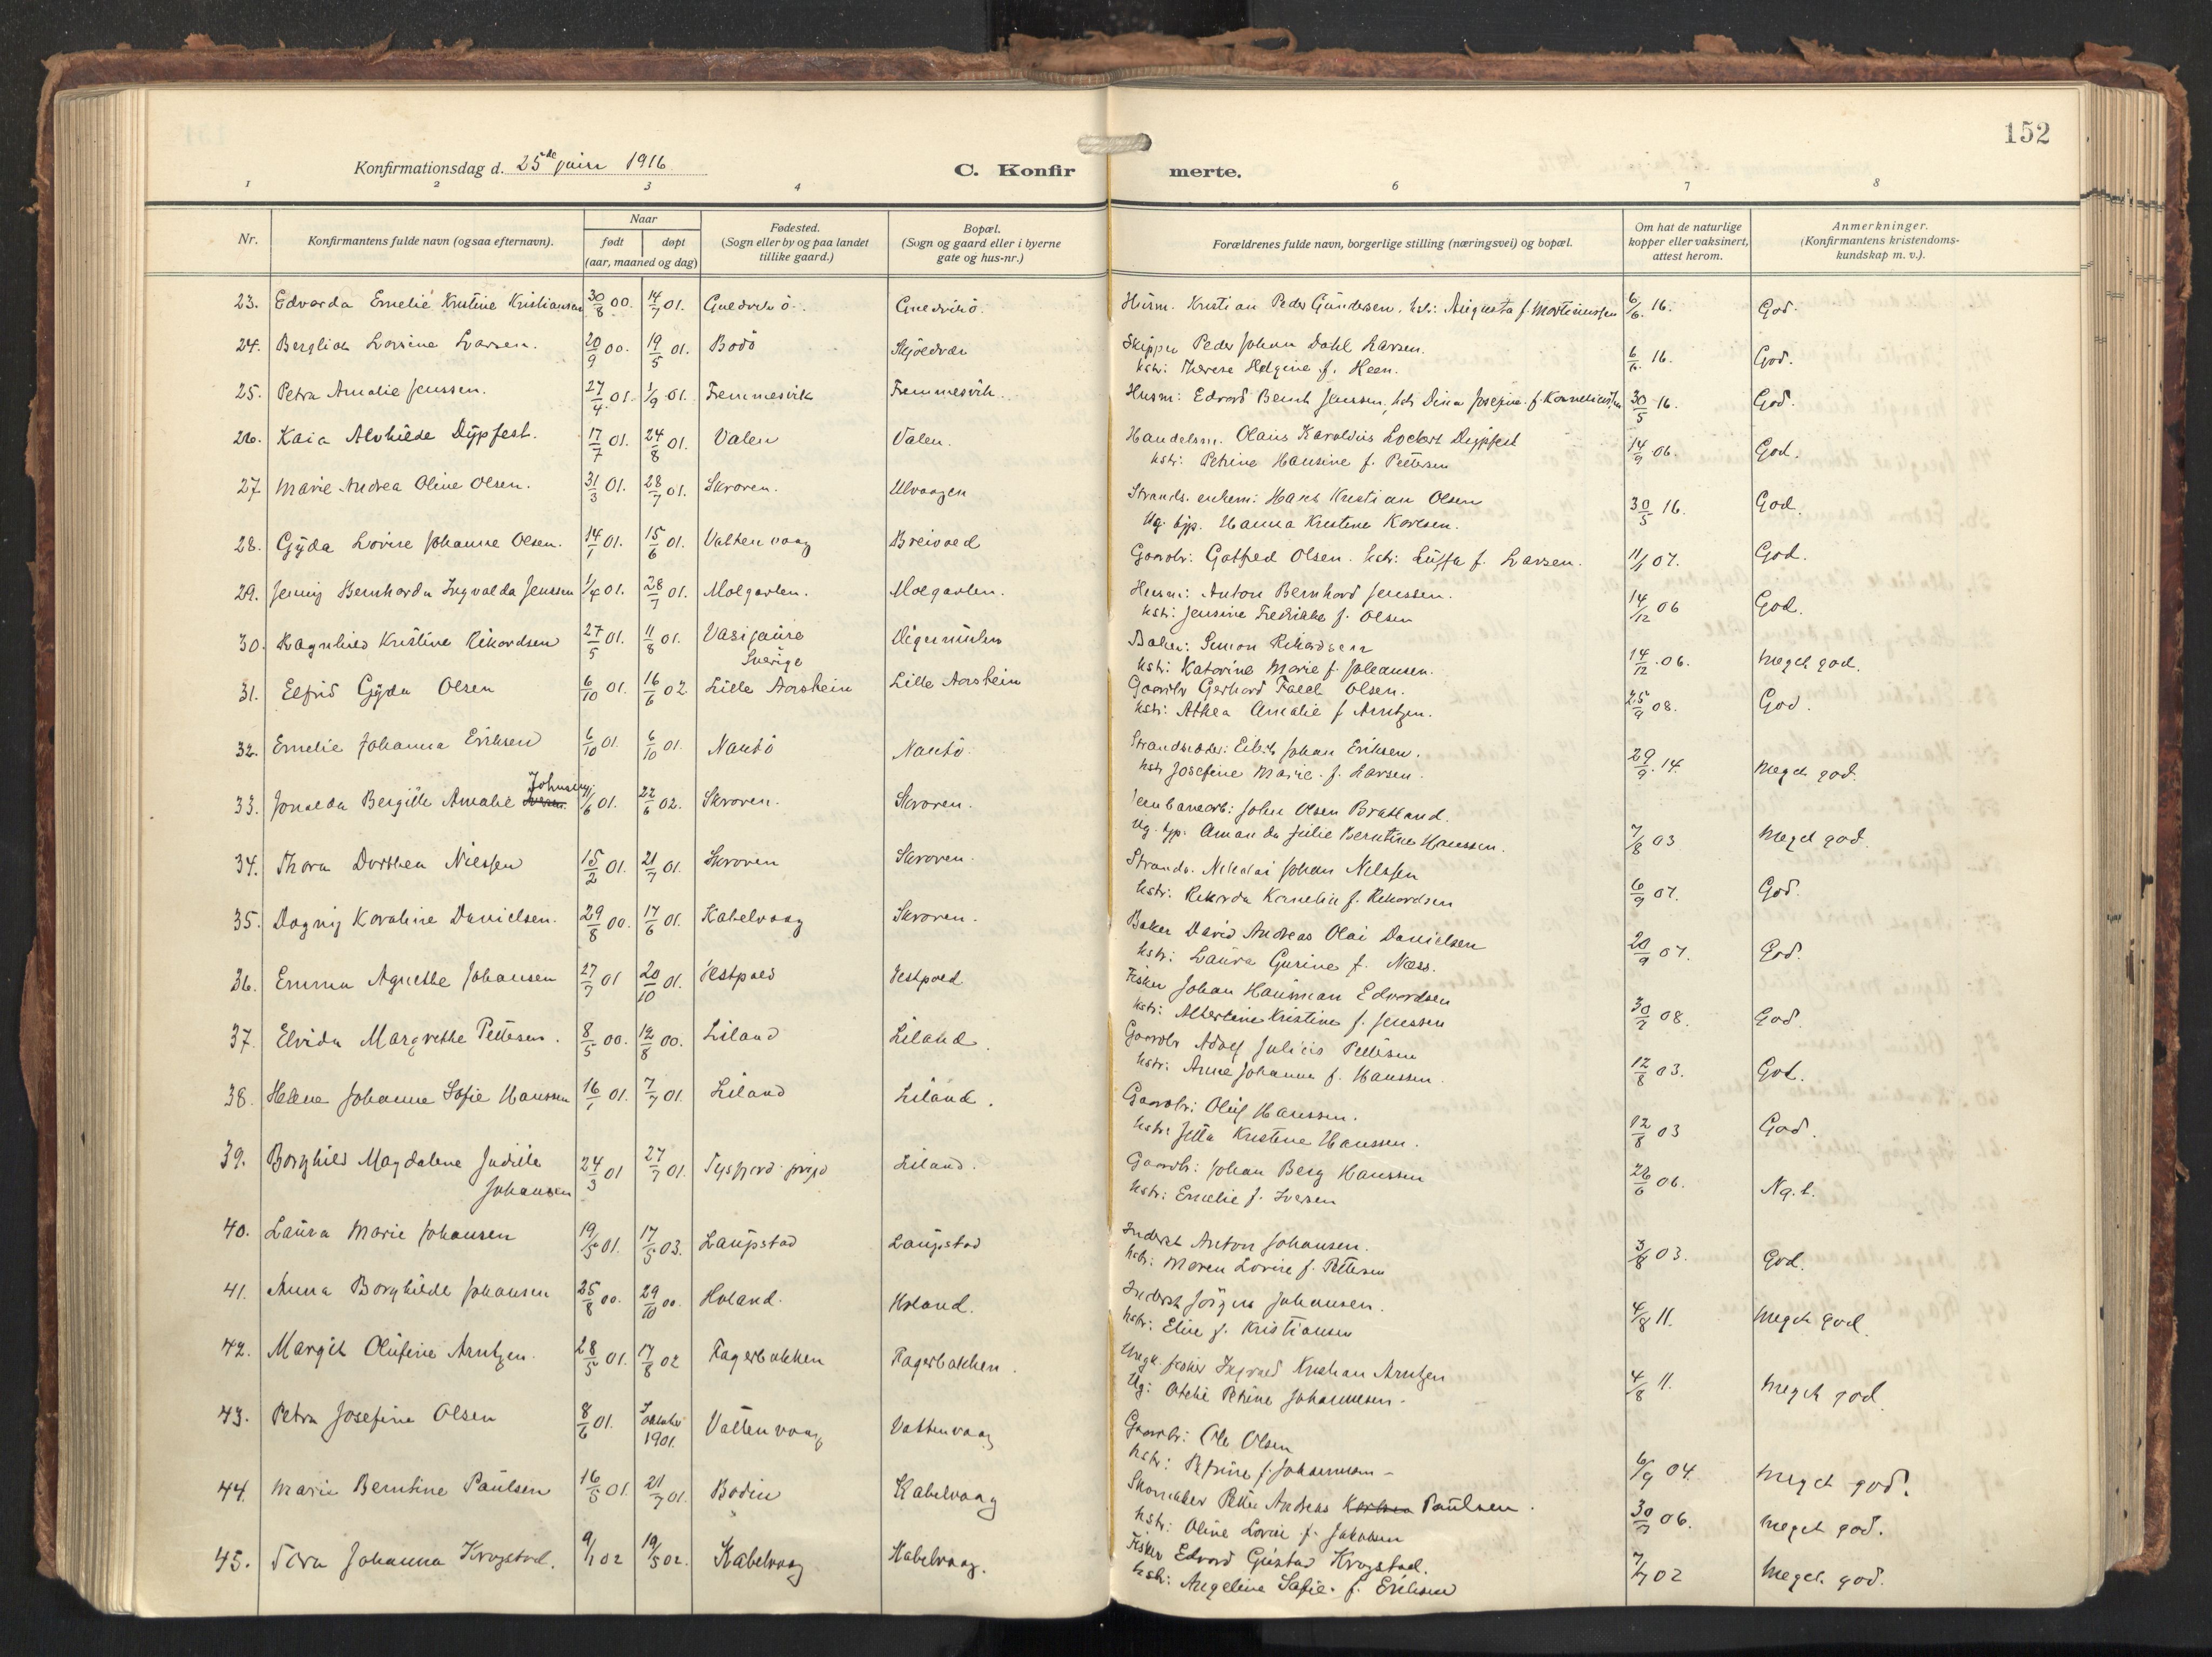 152
Konfirmationsdag d. 25de juni 1916
C. Konfirmerte.
1 2 3 4 6 7 8
Nr.
Konfirmantens fulde navn (ogsaa efternavn).
Naar
født døpt
(aar, maaned og dag)
Fødested.
(Sogn eller by og paa landet
tillike gaard.)
Bopæl.
(Sogn og gaard eller i byerne
gate og hus-nr.)
Forældrenes fulde navn, borgerlige stilling (næringsvei) og bopæl.
Om hat de naturlige
kopper eller vaksinert,
attest herom.
Anmerkninger.
(Konfirmantens kristendoms-
kundskap m. v.).
23. Edvarda Emelie Kristine Kristiansen 30/8 00. 14/7 01. Husm. Kristian Peder Gundersen, hstr: Augusta f. Martinussen 6/6 16. God.
24. Bergliot Lovise Larsen. 20/9 00. 19/5 01. Bodö Skjoldvær Skipper Peder Johan Dahl Larsen. 6/6 16. God.
hstr: Therese Helgine f. Heen.
25. Petra Amalie Jenssen. 27/4 01. 1/9 01. Femmesvik Femmesvik. Husm: Edvard Bernt Jenssen, hstr Dina Josefine f. Korneliussen 30/5 16. God.
26. Kaia Alvhilde Dypfest. 17/7 01. 24/8 01. Valen Valen. Handelsm. Olaus Karolius Lockert Dypfest 14/9 06. God.
hstr: Petrine Hansine f. Pettersen
27. Marie Andrea Oline Olsen. 31/3 01. 28/7 01. Skroven. Ulvaagen Strands. enkem: Hans Kristian Olsen 30/5 16. God.
Ug. pp. Hanna Kristine Karlsen.
28. Gyda Lovise Johanne Olsen. 14/1 01. 15/6 01. Vattenvaag Breivoed Gaardbr: Gotfred Olsen. hstr: Luffa f. Larsen. 11/1 07. God.
29. Jenny Bernharda Ingvalda Jenssen 1/4 01. 28/7 01. Molgavlen. Molgavlen. Husm: Anton Bernhard Jenssen. 14/12 06 God.
hstr: Jensine Fredrikke f. Olsen
30. Ragnhild Kristine Rikardsen 27/5 01. 11/8 01. Vasijaure Baker: Simon Rikardsen 14/12 06. Meget god.
Sverige
hstr: Katarine Marie f. Johansen.
31. Elfrid Gyda Olsen 6/10 01. 16/6 02. Lille Aarstein Lille Aarstein Gaardbr Gerhard Olsen. 25/9 08. God.
hstr: Athea Amalie f Arntzen.
32. Emelie Johanna Eriksen 6/10 01. 6/10 01. Nautö Nautö. Johan Eriksen. 29/9 14. Meget god.
hstr Josefine Marie f. Larsen.
Johnsen
33. Jonalda Bergitte Amalie 11/6 01. 22/6 02. Skroven. Skroven. Jernbanearb: John Olsen Bratland. 7/8 03 Meget god.
Ug. pp. Amanda Julie Berntine Hanssen.
34. Thora Dorthea Nilssen 15/2 01. 21/7 01. Skroven Skroven. Strands. Nikolai Johan Nilssen 6/9 07. God.
hstr: Rikarda Kornelia f. Rikardsen
35. Dagny Karoline Danielsen. 29/8 00. 17/6 01. Kabelvaag Skroven. Baker David Andreas Olai Danielsen 20/9 07. God.
hstr: Laura Gurine f. Næss.
36. Emma Agnethe Johansen 27/7 01 20/10 01. Vestpold Vestpold Fisker Johan Hausman Edvardsen 30/7 08. God.
hstr: Albertine Kristine f. Jenssen
37. Elvida Margrethe Pettersen. 8/5 00. 12/8 00. Liland Liland. Gaardbr Adolf Julius Pettersen 12/8 03. God.
hstr: Anne Johanna f. Hanssen.
38. Helene Johanne Sofie Hanssen 16/1 01. 7/7 01. Liland Liland. Gaardbr: Oluf Hanssen. 12/8 03 God.
hstr: Jetta Kristine Hanssen.
39. Borghild Magdalene Judille 24/3 01 27/7 01. Liland. Gaardbr: Johan Berg Hanssen 26/6 06. Ng. t.
Johansen
hstr: Emelie f. Iversen
40. Laura Marie Johansen 19/5 01. 17/5 03. Laupstad Laupstad Inderst Anton Johansen. 3/8 03. God.
hstr: Maren Lovise f. Pettersen
41. Anna Borghilde Johansen 25/8 00. 29/10 00. Holand. Holand. Inderst Jörgen Johansen. 4/8 11. Meget god
hstr: Elise f. Kristiansen
42. Margit Olufine Arntzen. 28/5 01. 17/8 02 Fagerbakken Fagerbakken. Ungk. fisker Ingvald Kristian Arntzen 4/8 11. Meget god
Ug: Petrine Johannesen.
43. Petra Josefine Olsen 8/6 01. oktober 1901. Vattenvaag Vattenvaag Gaardbr: Ole Olsen 6/9 04. Meget god.
hstr: Petrine f. Johannesen
44. Marie Berntine Paulsen 16/5 01. 21/7 01. Bodin Kabelvaag Skomaker Peter Andreas Karlsen Paulsen. 30/7 06. Meget god.
hstr: Oline Lovise f. Jakobsen
45. Tora Johanna Krogstad. 9/1 02 19/5 02. Kabelvaag Kabelvaag. Fisker Edvard Gustav Krogstad. 7/7 02 Meget god.
hstr: Angeline Sofie f. Eriksen